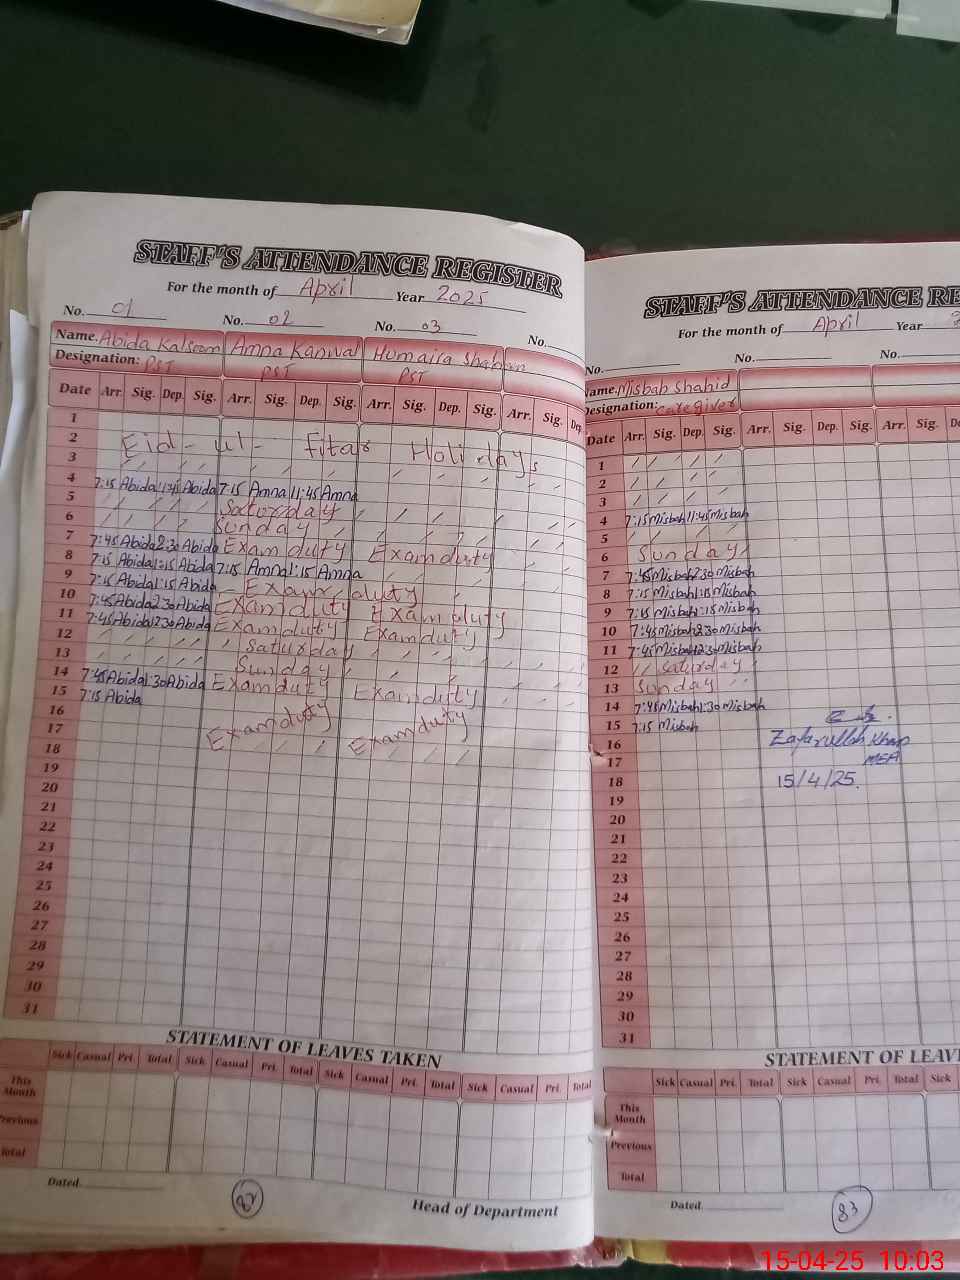 STAFF'S ATTENDANCE REGISTER
For the month of April Year 2025
No. 01 No. 02 No. 03 No.
Name. Abida Kalsoom Amna Kanwal Humaira Shaheen
Designation: PST PST PST
Date Arr. Sig. Dep. Sig. Arr. Sig. Dep. Sig. Arr. Sig. Dep. Sig. Arr. Sig. Dep.
1
2 Eid-ul-Fitar Holidays
3
4 7:15 Abida 11:45 Abida 7:15 Amna 11:45 Amna
5 Saturday
6 Sunday
7 7:45 Abida 2:30 Abida Exam duty Exam duty
8 7:15 Abida 1:15 Abida 7:15 Amna 1:15 Amna
9 7:15 Abida 1:15 Abida Exam duty
10 7:45 Abida 2:30 Abida Exam duty Exam duty
11 7:45 Abida 12:30 Abida Exam duty Exam duty
12 Saturday
13 Sunday
14 7:45 Abida 1:30 Abida Exam duty Exam duty
15 7:15 Abida Exam duty Exam duty
16
17
18
19
20
21
22
23
24
25
26
27
28
29
30
31
STATEMENT OF LEAVES TAKEN
Sick Casual Pri. Total Sick Casual Pri. Total Sick Casual Pri. Total Sick Casual Pri. Total
This Month
Previous
Total
Dated.
82
Head of Department
STAFF'S ATTENDANCE RE
For the month of April Year 2
No. No. No.
Name. Misbah Shahid
Designation: Care giver
Date Arr. Sig. Dep. Sig. Arr. Sig. Dep. Sig. Arr. Sig. De
1
2
3
4 7:15 Misbah 11:45 Misbah
5
6 Sunday
7 7:45 Misbah 2:30 Misbah
8 7:15 Misbah 1:15 Misbah
9 7:15 Misbah 1:15 Misbah
10 7:45 Misbah 2:30 Misbah
11 7:45 Misbah 12:30 Misbah
12 Saturday
13 Sunday
14 7:45 Misbah 1:30 Misbah
15 7:15 Misbah
16 Zafarullah Khan
17 MEA
18 15/4/25.
19
20
21
22
23
24
25
26
27
28
29
30
31
STATEMENT OF LEAV
Sick Casual Pri. Total Sick Casual Pri. Total Sick
This Month
Previous
Total
Dated.
83
15-04-25 10:03